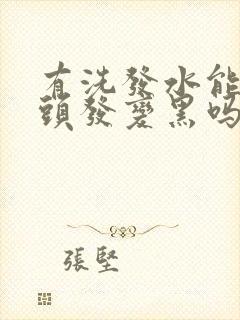 有洗發水能
頭發變黑吗
張堅